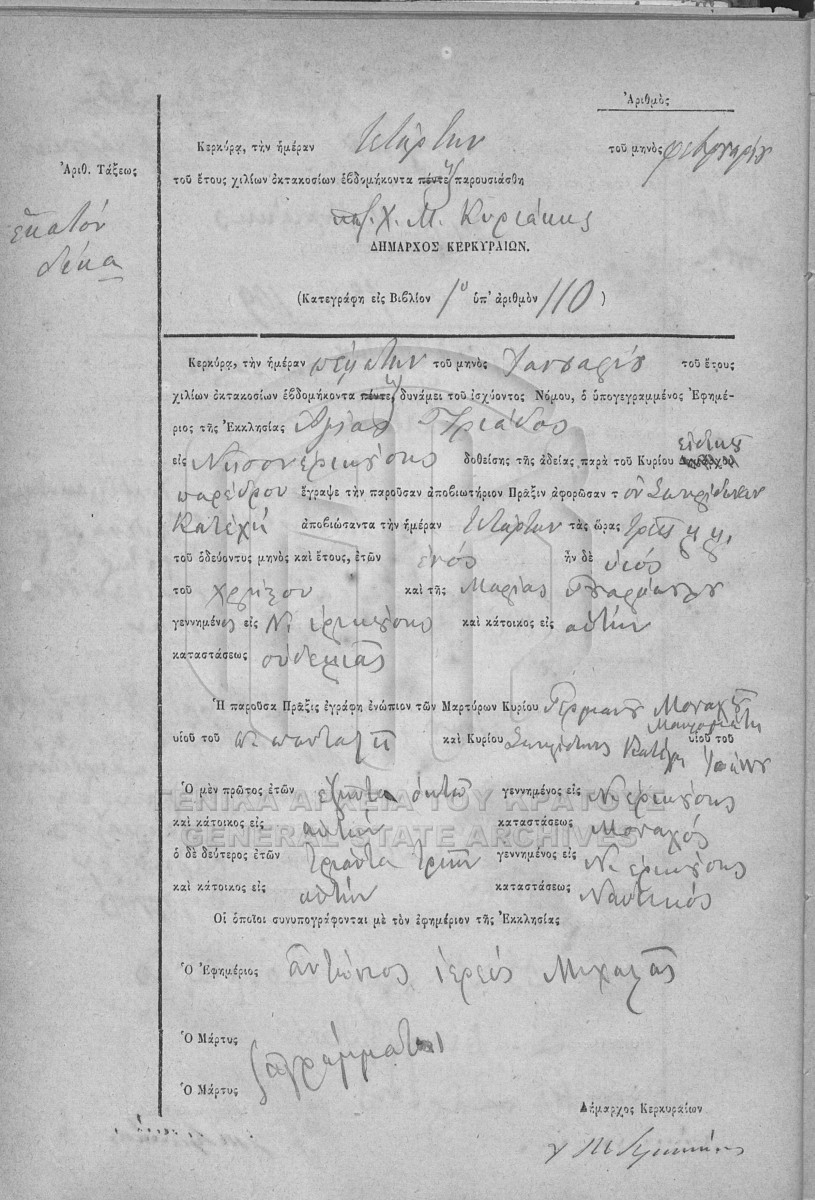 Ἀριθμὸς
Κερκύρᾳ, τὴν ἡμέραν Τετάρτην τοῦ μηνὸς φεβρουαρίου
Ἀριθ. Τάξεως
τοῦ ἔτους χιλίων ὀκτακοσίων ἑβδομήκοντα πέντε ἓξ παρουσιάσθη
ἑκατόν
δέκα
Χ. Μ. Κυριάκης
ΔΗΜΑΡΧΟΣ ΚΕΡΚΥΡΑΙΩΝ.
(Κατεγράφη εἰς Βιβλίον 1ο ὑπ' ἀριθμὸν 110 )
Κερκύρᾳ, τὴν ἡμέραν πέμπτην τοῦ μηνὸς Ἰανουαρίου τοῦ ἔτους
χιλίων ὀκτακοσίων ἑβδομήκοντα πέντε, ἓξ δυνάμει τοῦ ἰσχύοντος Νόμου, ὁ ὑπογεγραμμένος Ἐφημέ-
ριος τῆς Ἐκκλησίας Ἁγίας Τριάδος
εἰς Νῆσον Ἐρικούσης δοθείσης τῆς ἀδείας παρὰ τοῦ Κυρίου Δημάρχου εἰδικοῦ
παρέδρου ἔγραψε τὴν παροῦσαν ἀποβιωτήριον Πρᾶξιν ἀφορῶσαν τὸν Σπυρίδωνα
Κατέχη ἀποβιώσαντα τὴν ἡμέραν Τετάρτην τὰς ὥρας τρεῖς μ. μ.
τοῦ ὁδεύοντος μηνὸς καὶ ἔτους, ἐτῶν ἑνός ἦν δὲ υἱός
τοῦ καὶ τῆς Μαρίας
γεννημένος εἰς Ν. Ἐρικούσης καὶ κάτοικος εἰς αὐτήν
καταστάσεως οὐδεμιᾶς
Ἡ παροῦσα Πρᾶξις ἐγράφη ἐνώπιον τῶν Μαρτύρων Κυρίου Γερμανοῦ Μοναχοῦ
υἱοῦ τοῦ καὶ Κυρίου Σπυρίδωνος Κατέχη υἱοῦ τοῦ Ἰωάννου
Ὁ μὲν πρῶτος ἐτῶν ἑξήντα ὀκτώ γεννημένος εἰς Ν. Ἐρικούσης
καὶ κάτοικος εἰς αὐτήν καταστάσεως Μοναχός
ὁ δὲ δεύτερος ἐτῶν τριάντα τριῶν γεννημένος εἰς Ν. Ἐρικούσης
καὶ κάτοικος εἰς αὐτήν καταστάσεως Ναυτικός
Οἱ ὁποῖοι συνυπογράφονται μὲ τὸν ἐφημέριον τῆς Ἐκκλησίας
Ὁ Ἐφημέριος Ἀντώνιος ἱερεύς Μιχαλᾶς
Ὁ Μάρτυς
ἀγράμματοι
Ὁ Μάρτυς
Δήμαρχος Κερκυραίων
ΓΕΝΙΚΑ ΑΡΧΕΙΑ ΤΟΥ ΚΡΑΤΟΥΣ
GENERAL STATE ARCHIVES